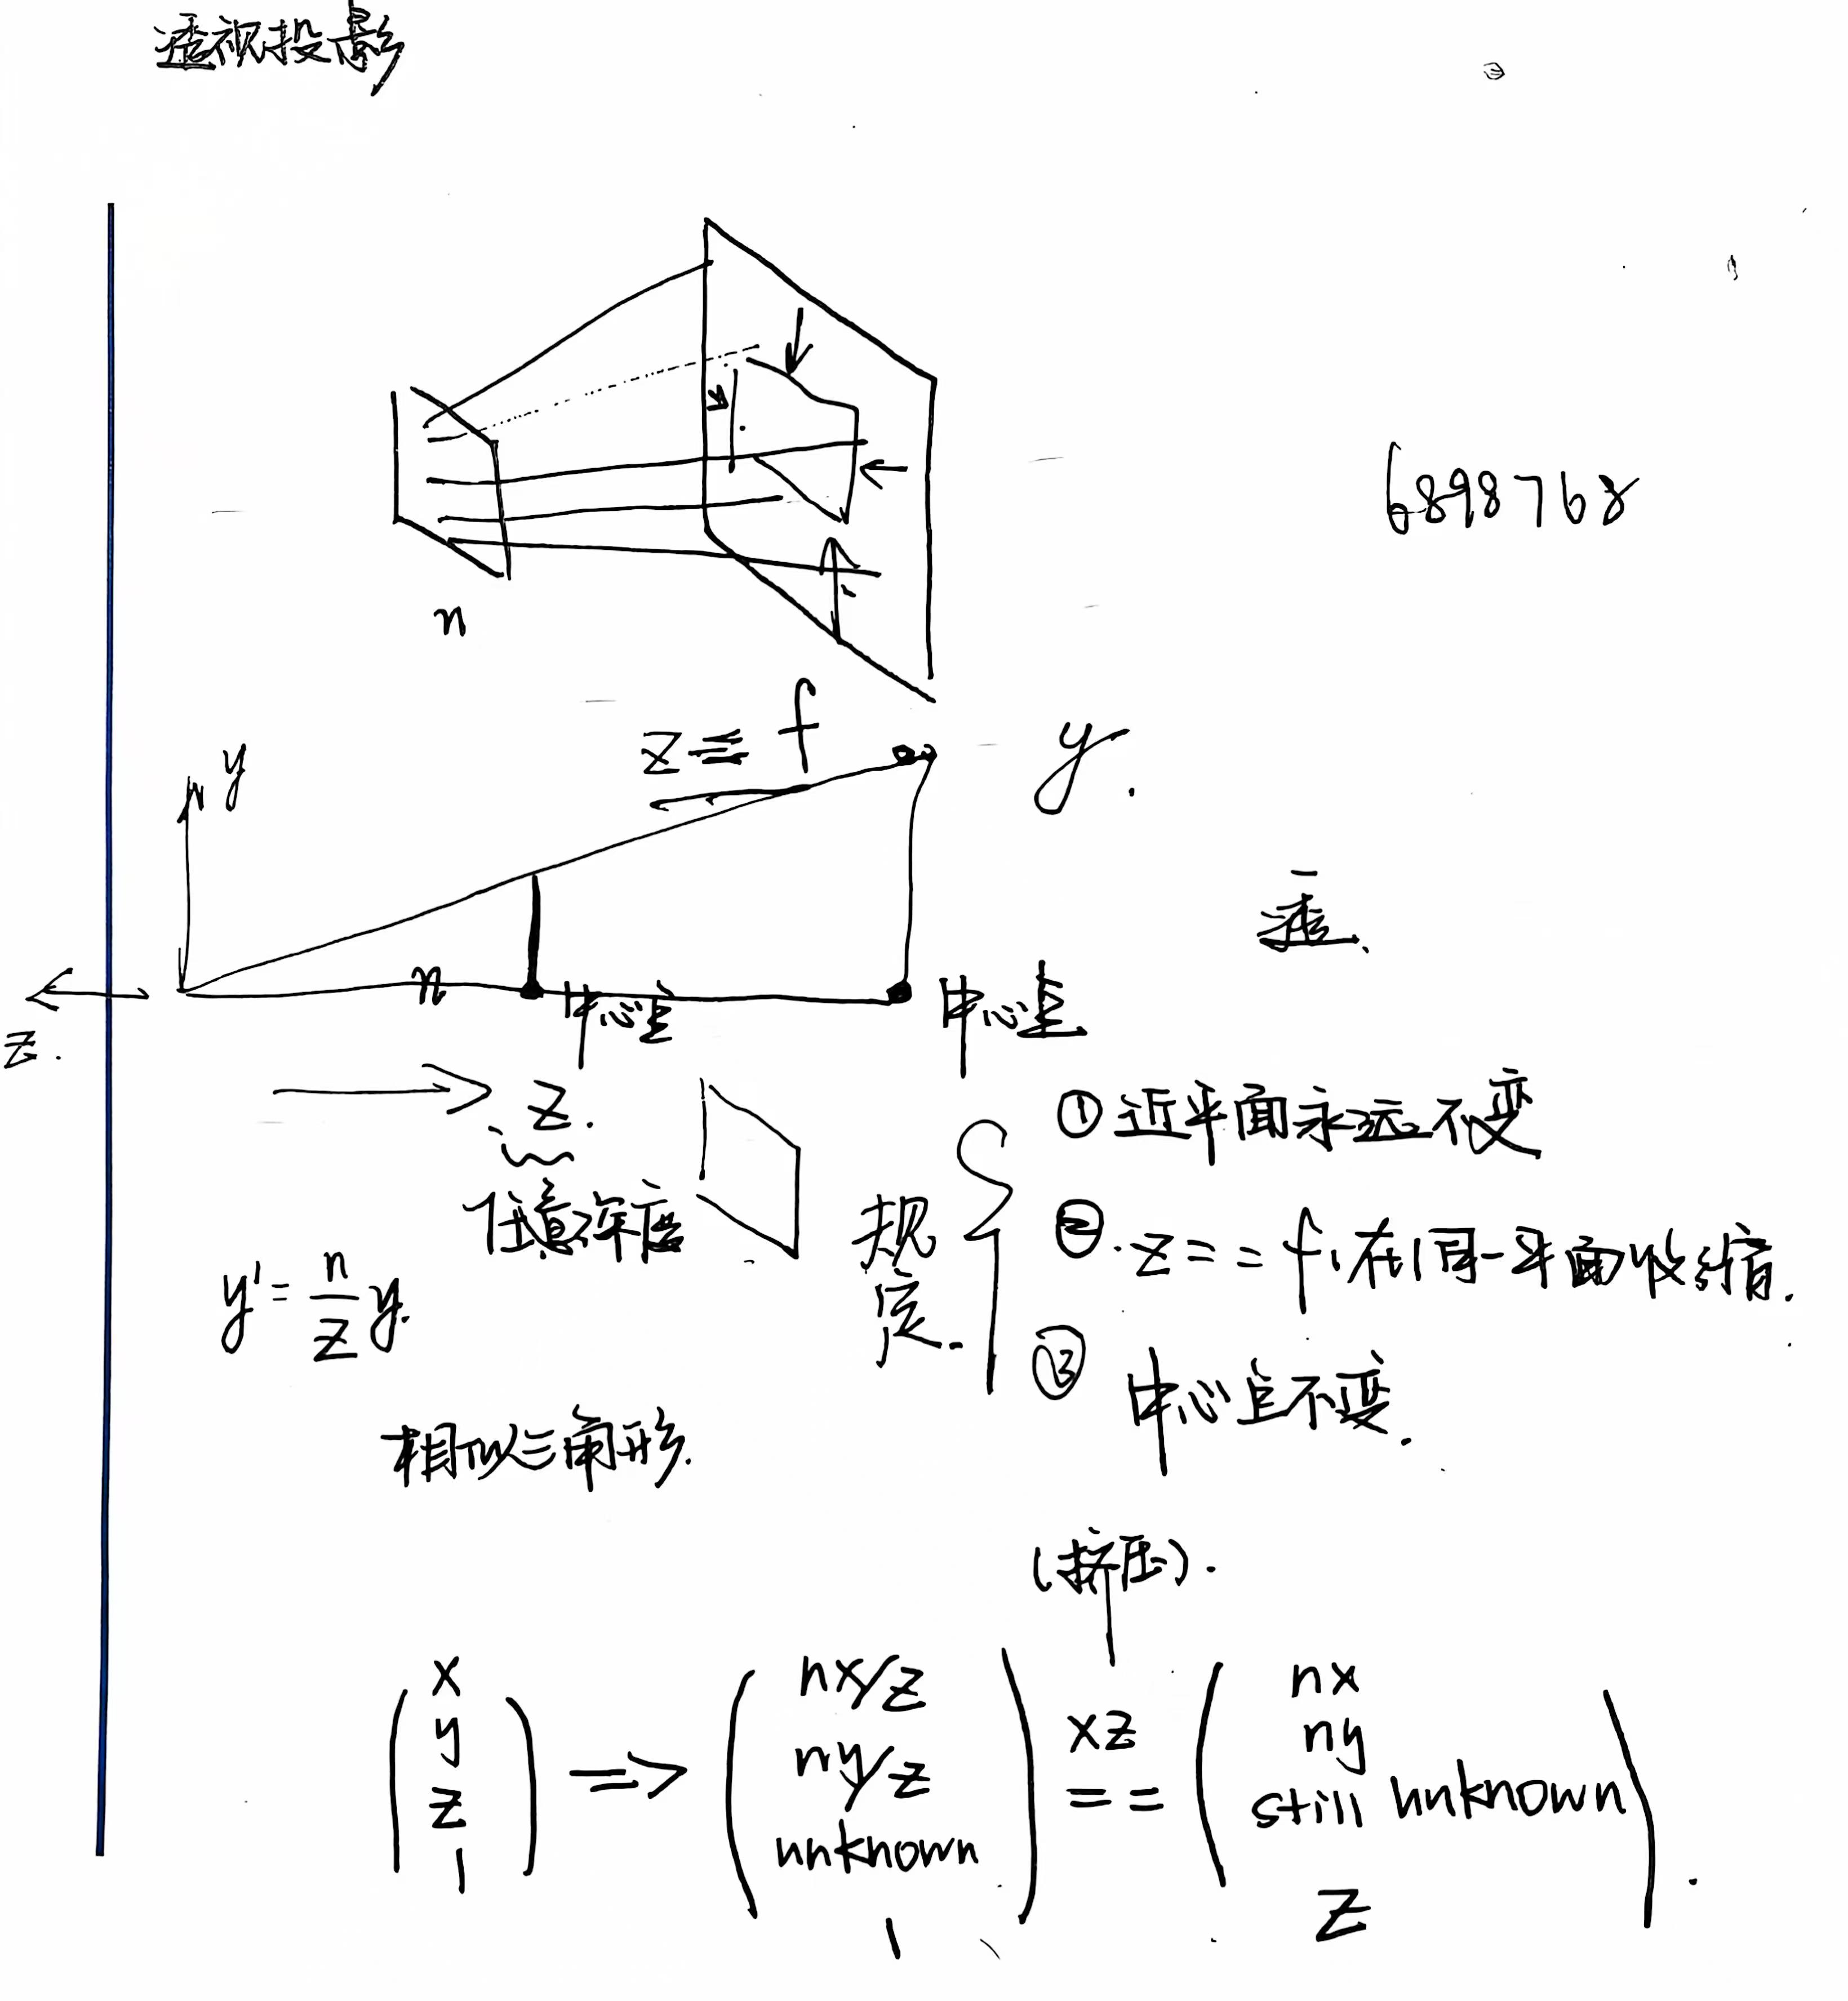 透视投影
6898768
n
z = f
y
y.
透.
n
中心点
中心点
z.
z.
任意深度
规定.
① 近平面永远不变
②. z == f, 在同一平面收缩.
③ 中心点不变.
y' = n/z y.
相似三角形.
(挤压).
x nx/z nx
y ny/z xz ny
z => unknown == still unknown
1 1 z